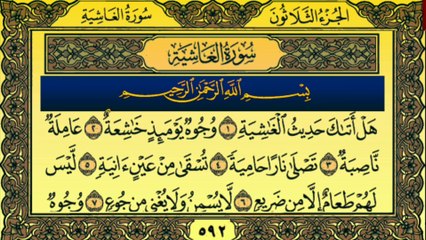 الجزء الثلاثون سورة الغاشية
سورة الغاشية
بسم الله الرحمن الرحيم
هَلْ أَتَىٰكَ حَدِيثُ ٱلْغَٰشِيَةِ ١ وُجُوهٌ يَوْمَئِذٍ خَٰشِعَةٌ ٢ عَامِلَةٌ
نَّاصِبَةٌ ٣ تَصْلَىٰ نَارًا حَامِيَةً ٤ تُسْقَىٰ مِنْ عَيْنٍ ءَانِيَةٍ ٥ لَّيْسَ
لَهُمْ طَعَامٌ إِلَّا مِن ضَرِيعٍ ٦ لَّا يُسْمِنُ وَلَا يُغْنِى مِن جُوعٍ ٧ وُجُوهٌ
٥٩٢